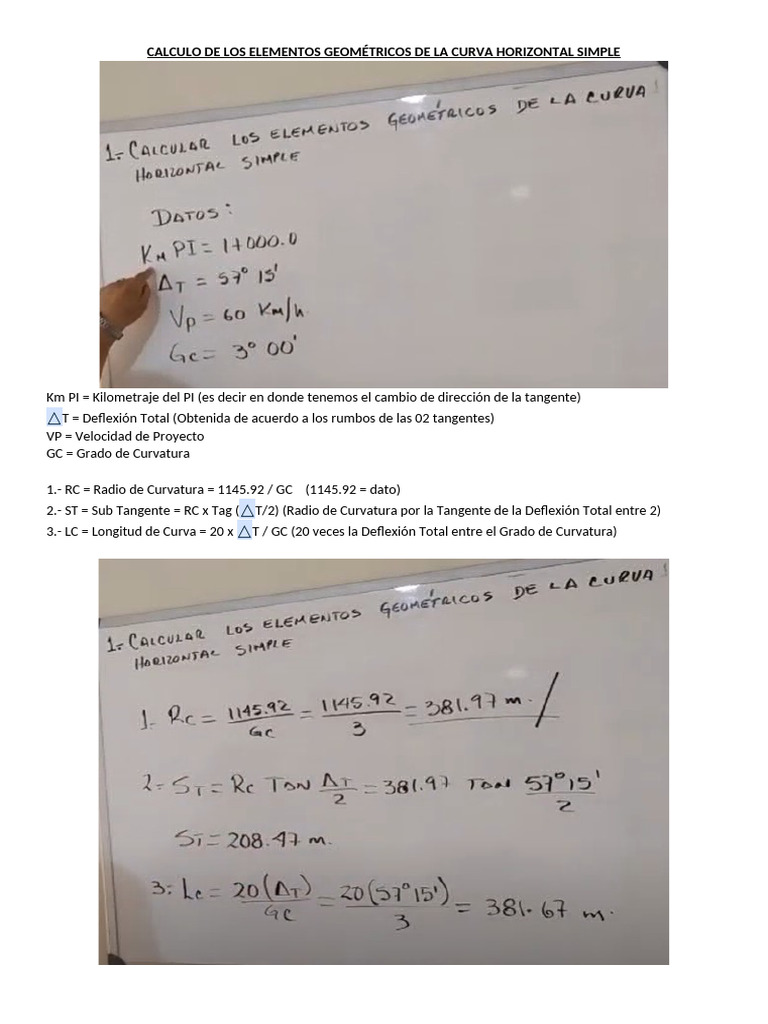 CALCULO DE LOS ELEMENTOS GEOMÉTRICOS DE LA CURVA HORIZONTAL SIMPLE
1.- CALCULAR LOS ELEMENTOS GEOMÉTRICOS DE LA CURVA
HORIZONTAL SIMPLE
DATOS:
Km PI = 1+000.0
ΔT = 57° 15'
Vp = 60 Km/h
Gc = 3° 00'
Km PI = Kilometraje del PI (es decir en donde tenemos el cambio de dirección de la tangente)
△T = Deflexión Total (Obtenida de acuerdo a los rumbos de las 02 tangentes)
VP = Velocidad de Proyecto
GC = Grado de Curvatura
1.- RC = Radio de Curvatura = 1145.92 / GC (1145.92 = dato)
2.- ST = Sub Tangente = RC x Tag (△T/2) (Radio de Curvatura por la Tangente de la Deflexión Total entre 2)
3.- LC = Longitud de Curva = 20 x △T / GC (20 veces la Deflexión Total entre el Grado de Curvatura)
1.- CALCULAR LOS ELEMENTOS GEOMÉTRICOS DE LA CURVA
HORIZONTAL SIMPLE
1.- Rc = 1145.92/Gc = 1145.92/3 = 381.97 m.
2.- ST = Rc TAN ΔT/2 = 381.97 TAN 57°15'/2
ST = 208.47 m.
3.- Lc = 20(ΔT)/Gc = 20(57°15')/3 = 381.67 m.